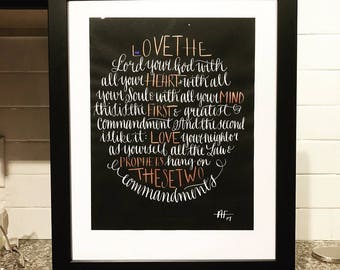 LOVE THE
Lord your God with
all your HEART with all
your Soul & with all your MIND
this is the FIRST & greatest
Commandment And the second
is like it: LOVE your neighbor
as yourself all the Law &
PROPHETS hang on
THESE TWO
commandments
AF